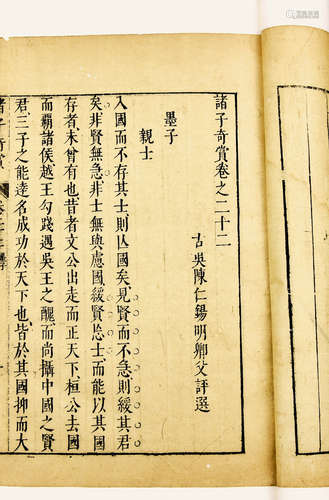 諸子奇賞卷之二十二
古吳陳仁錫明卿父評選
墨子
親士
入國而不存其士則亾國矣見賢而不急則緩其君
矣非賢無急非士無與慮國緩賢忘士而能以其國
存者未曾有也昔者文公出走而正天下桓公去國
而霸諸侯越王勾踐遇吳王之醜而尚攝中國之賢
君三子之能達名成功於天下也皆於其國抑而大
諸子奇賞